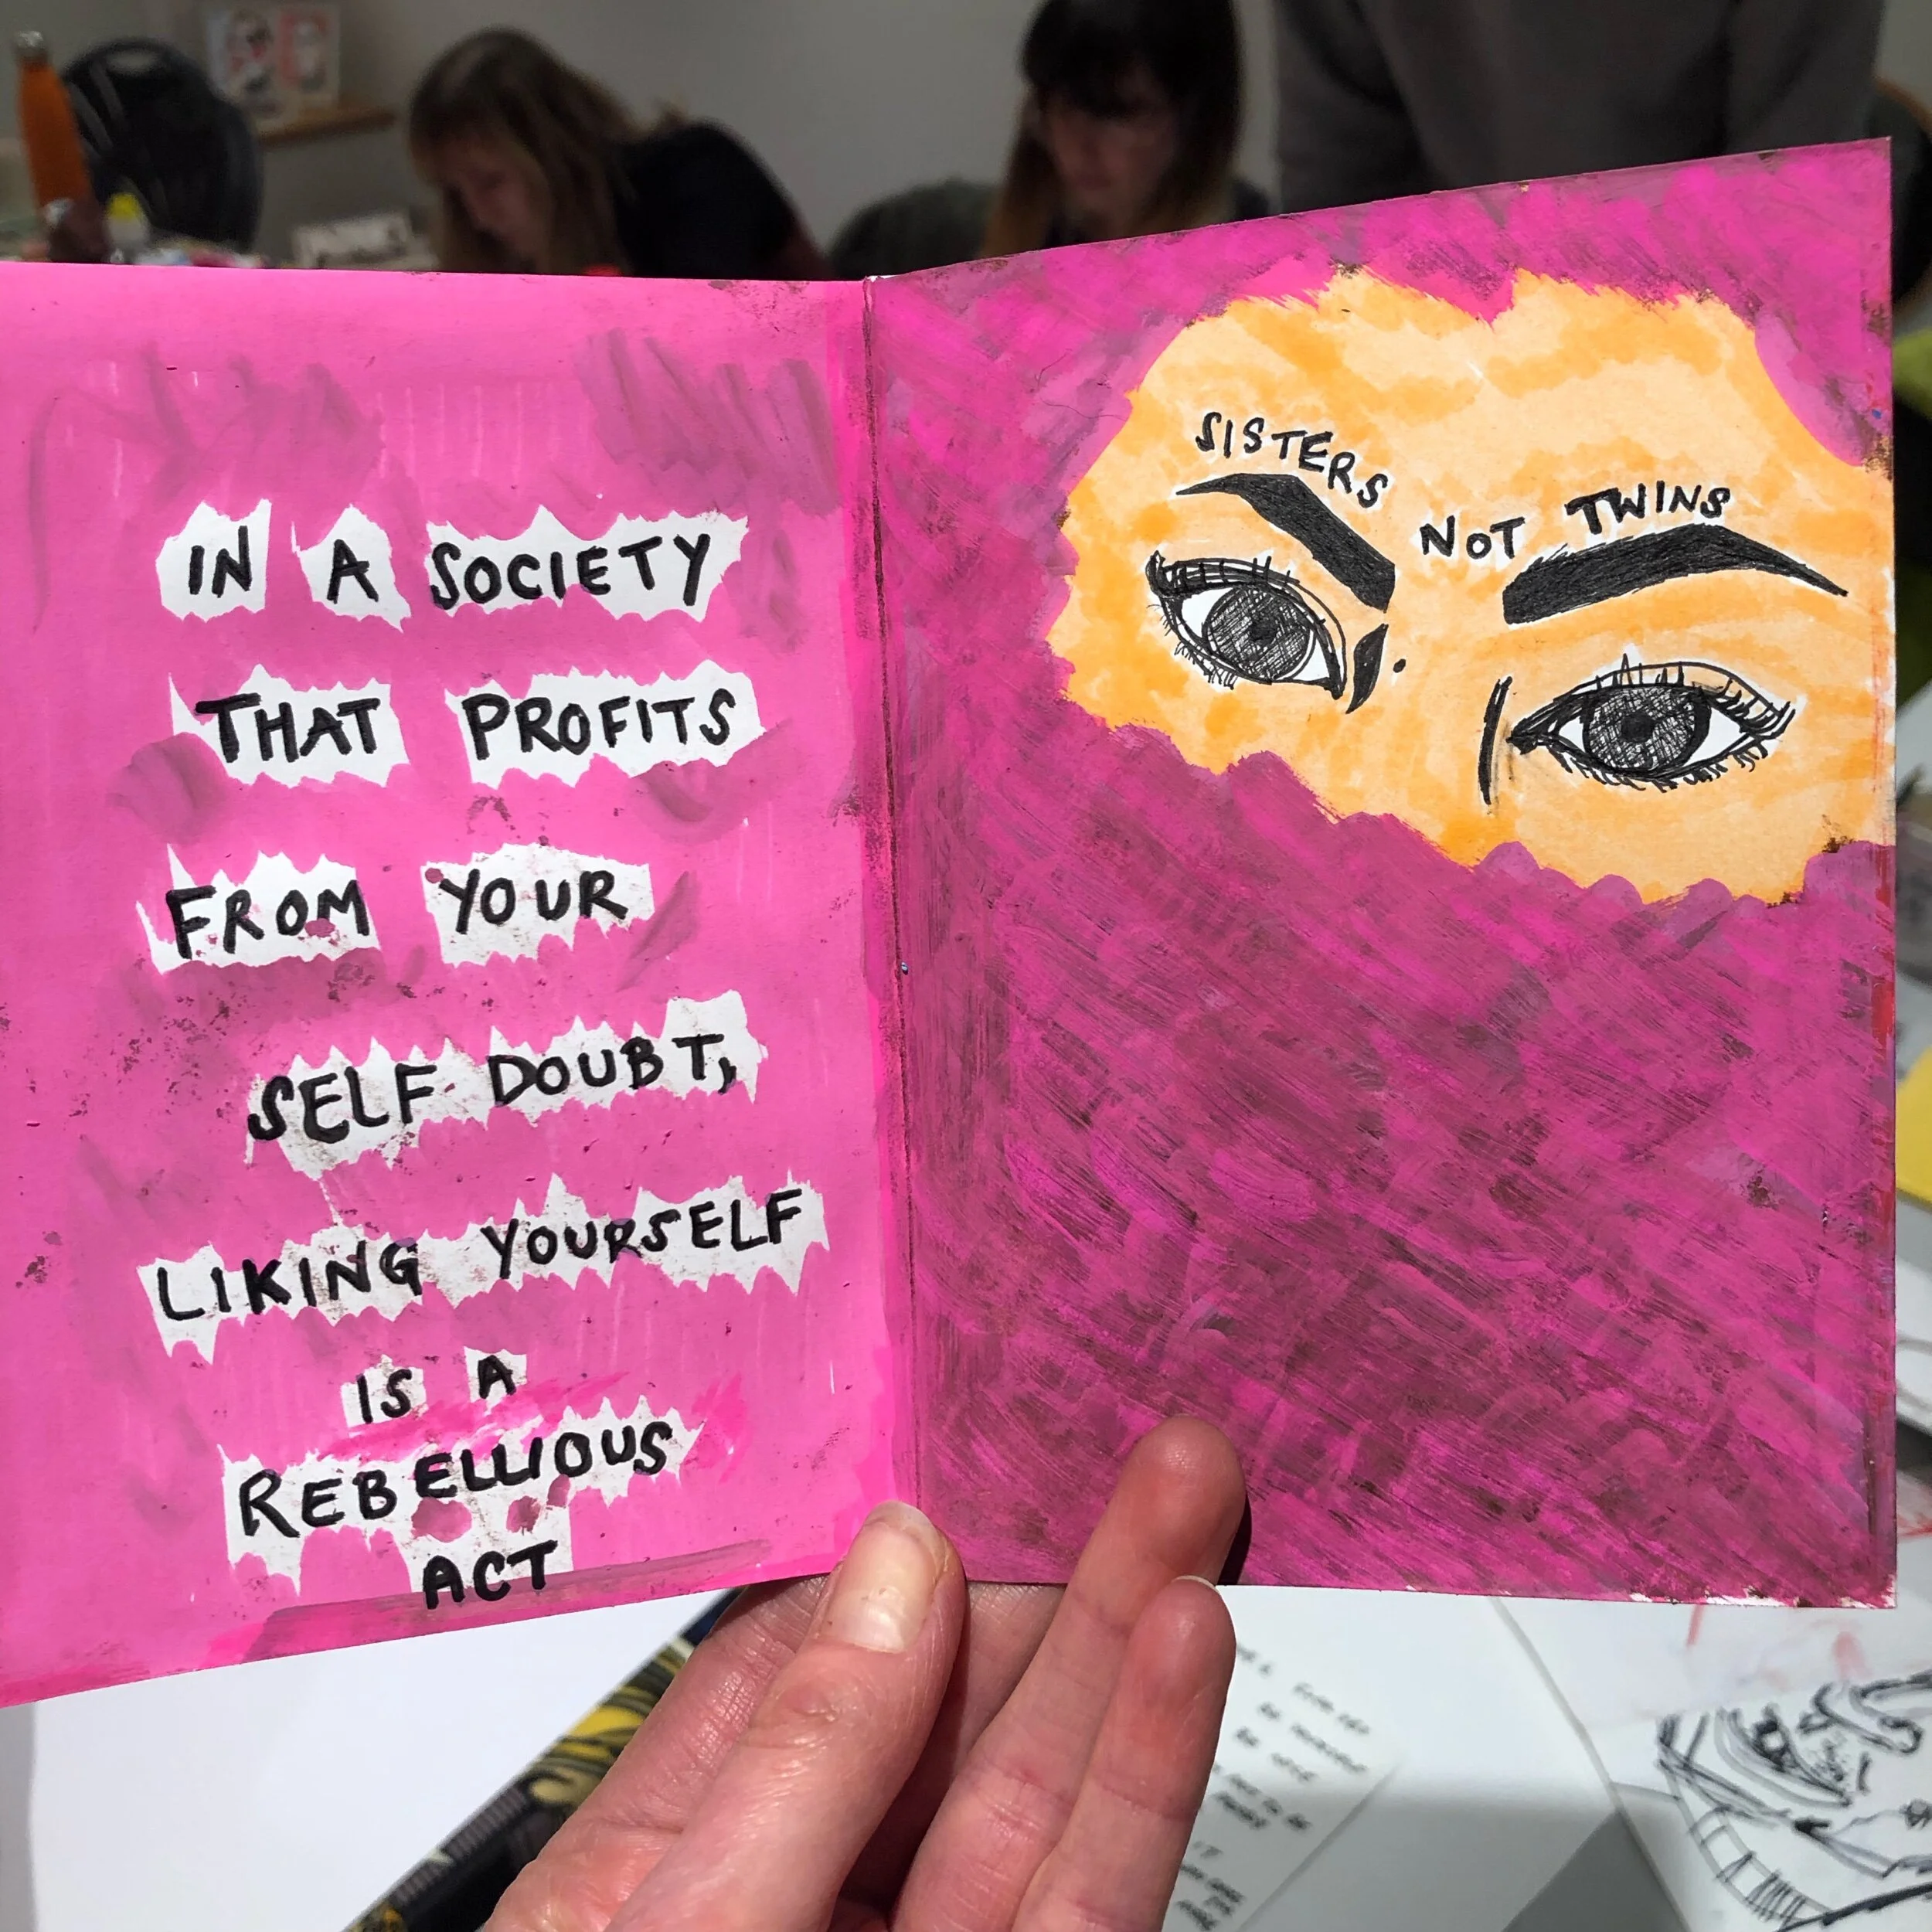 IN A SOCIETY
THAT PROFITS
FROM YOUR
SELF DOUBT,
LIKING YOURSELF
IS A
REBELLIOUS
ACT
SISTERS NOT TWINS